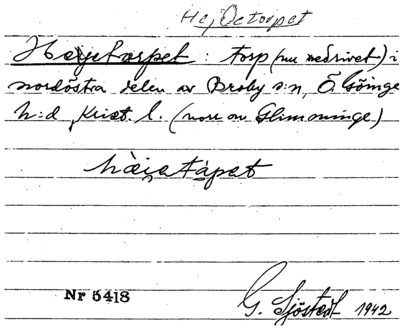 Hejåetorpet
Hejetorpet : torp (nu nedrivet) i
nordöstra delen av Broby s:n, Ö. Göinge
h:d Krist. l. (norr om Glimminge)
hàjetåpet
Nr 5418
G. Sjöstedt 1942